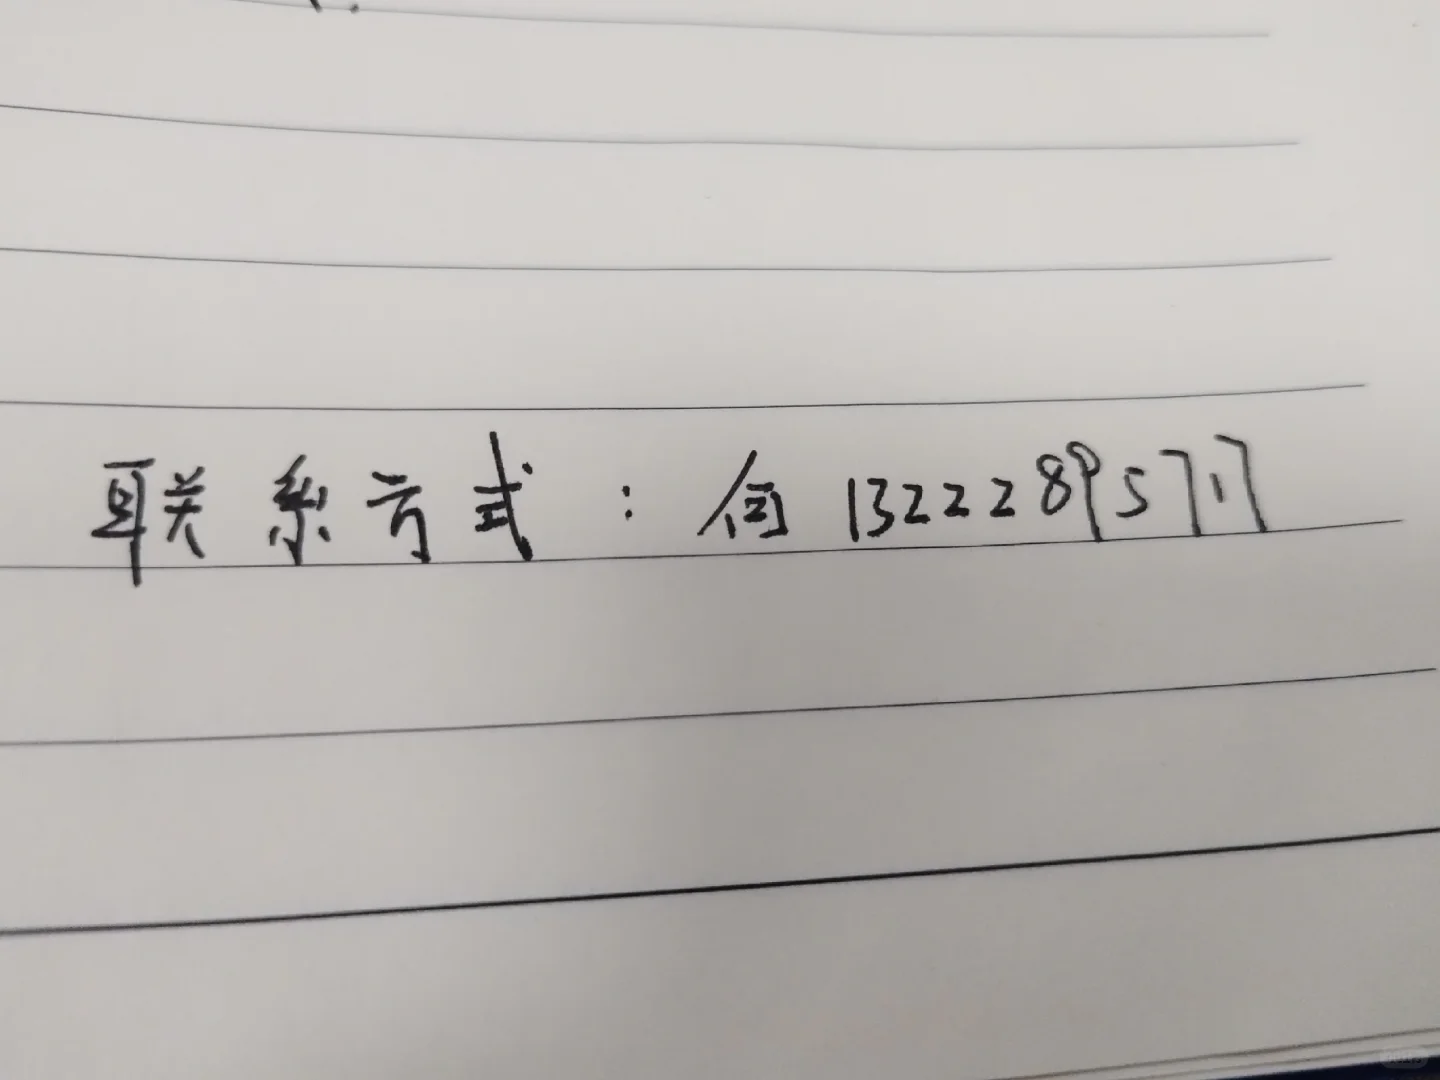 联系方式：何 13222895717